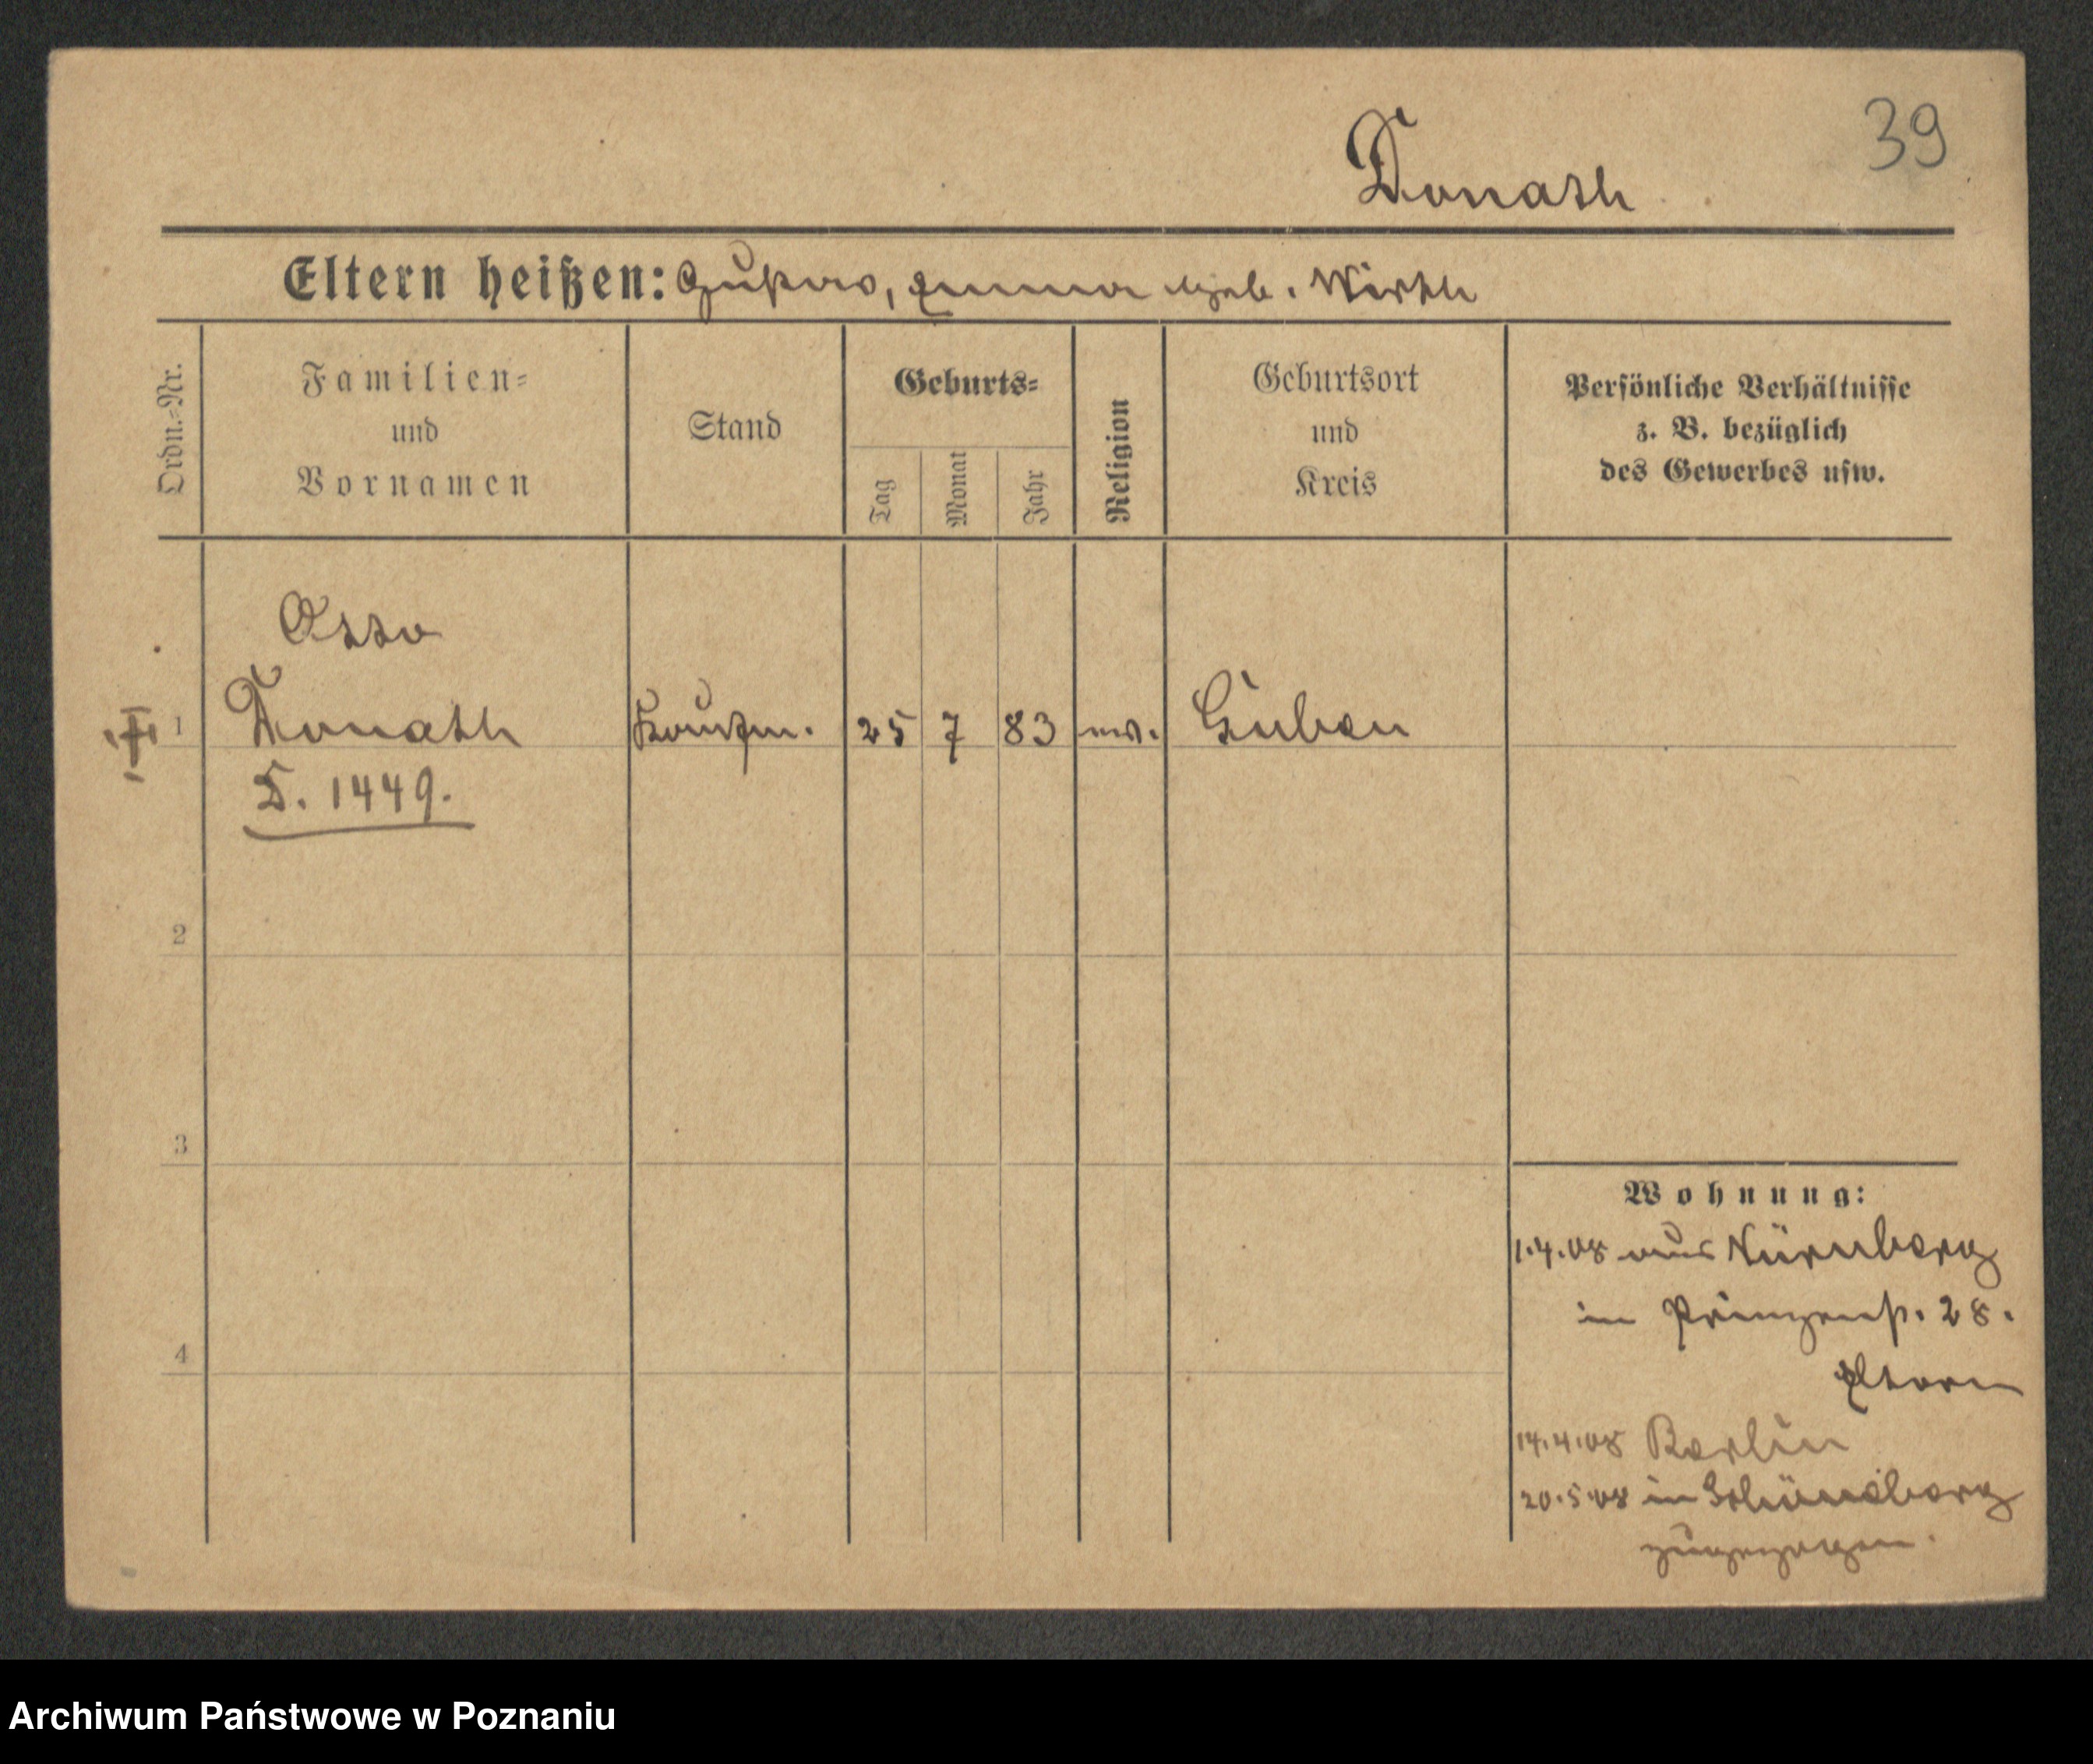 39
Donath
Eltern heißen: Gustav, Emma geb. Wirth
Ordn.-Nr.
Familien-
und
Vornamen
Stand
Geburts-
Tag
Monat
Jahr
Religion
Geburtsort
und
Kreis
Persönliche Verhältnisse
z. B. bezüglich
des Gewerbes usw.
Otto
1 Donath Kaufm. 25 7 83 ev. Guben
D. 1449.
2
3
4
Wohnung:
1.4.08 aus Nürnberg
in Prinzenst. 28.
Eltern
14.4.08 Berlin
20.5.08 in Schöneberg
zugezogen.
Archiwum Państwowe w Poznaniu